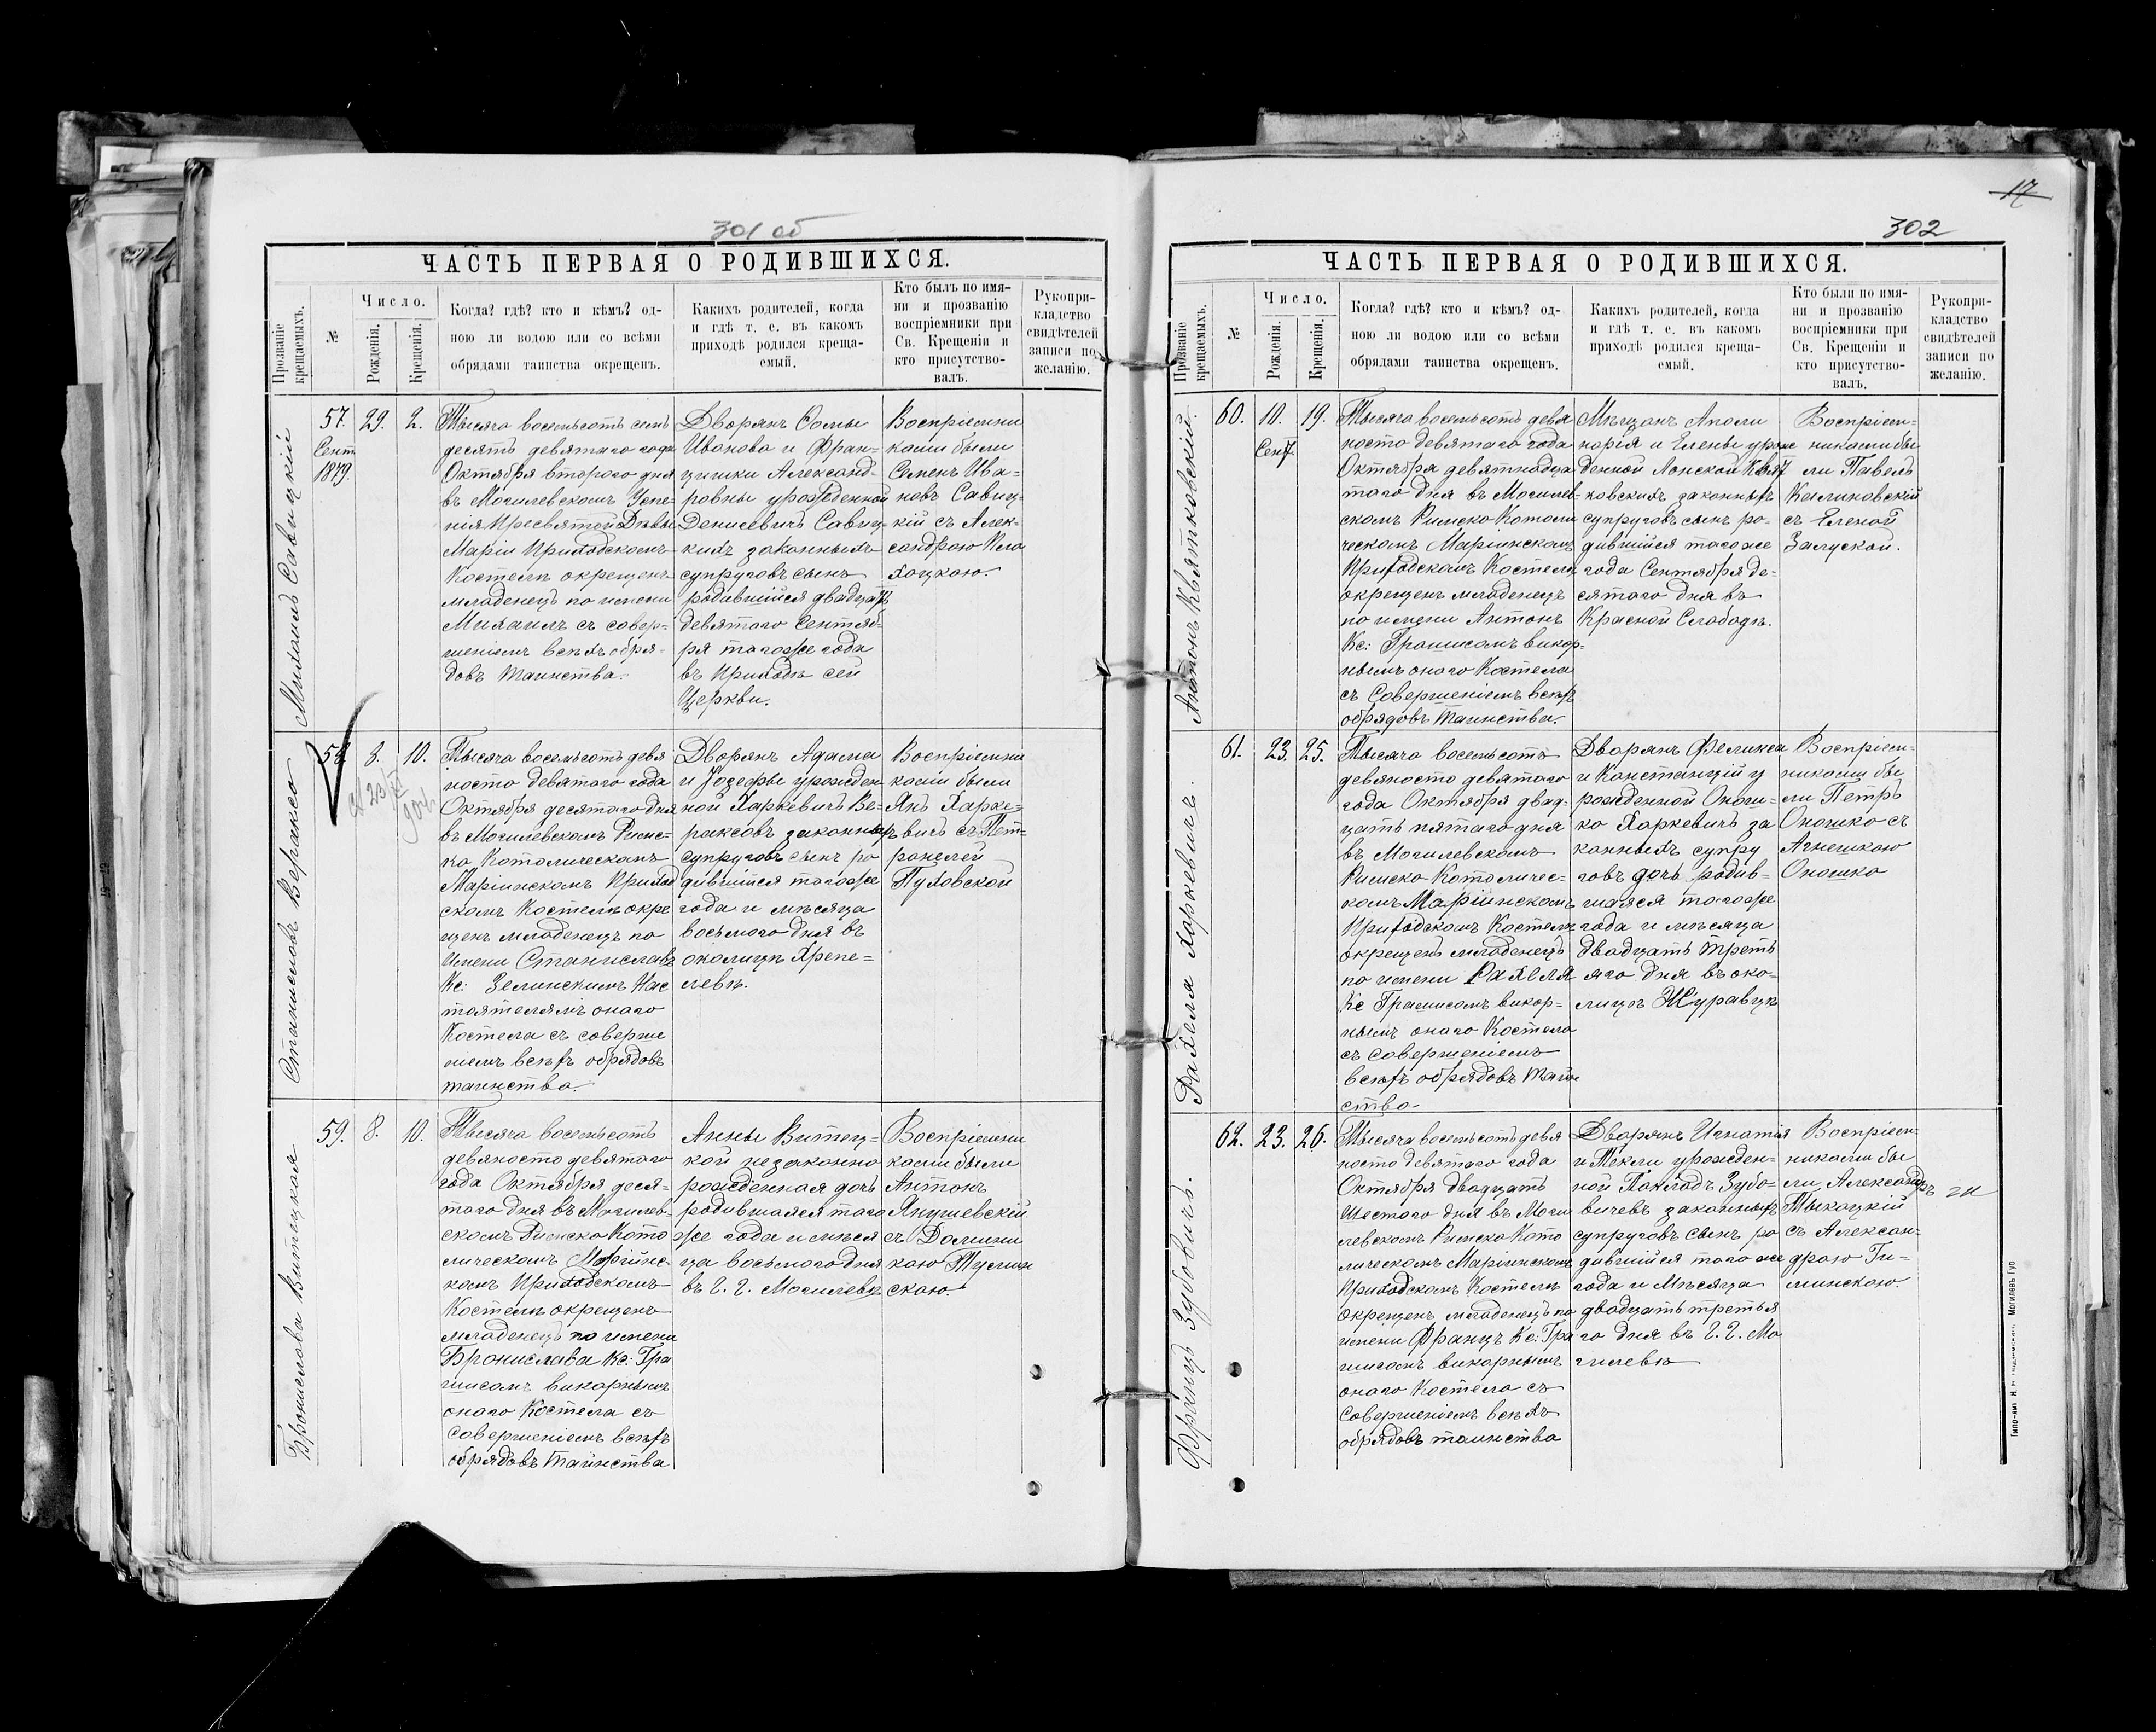 301 об
ЧАСТЬ ПЕРВАЯ О РОДИВШИХСЯ.
Прозваніе крещаемыхъ.
№
Число.
Рожденія.
Крещенія.
Когда? гдѣ? кто и кѣмъ? од-
ною ли водою или со всѣми
обрядами таинства окрещенъ.
Какихъ родителей, когда
и гдѣ т. е. въ какомъ
приходѣ родился креща-
емый.
Кто былъ по имя-
ни и прозванію
воспріемники при
Св. Крещеніи и
кто присутство-
валъ.
Рукопри-
кладство
свидѣтелей
записи по
желанію.
Михаилъ Савицкій
57.
Сент
1879.
29.
2.
Тысяча восемьсотъ семь
десятъ девятаго года
Октября второго дня
въ Могилевскомъ Успе-
нія Пресвятой Дѣвы
Маріи Приходскомъ
Костелѣ окрещенъ
младенецъ по имени
Михаилъ съ совер-
шеніемъ всѣхъ обря-
довъ таинства.
Дворянъ Сомы
Иванова и Фран-
цишки Александ-
ровны урожденной
Денисевичъ Савиц-
кихъ законныхъ
супруговъ сынъ
родившійся двадцать
девятаго Сентяб-
ря тогоже года
въ Приходѣ сей
Церкви.
Воспріемни
ками были
Семенъ Ива-
новъ Савиц-
кій съ Алек-
сандрою Пло
хоцкою.
Станиславъ Веракса
58.
8.
10.
Тысяча восемьсотъ девя
носто девятаго года
Октября десятаго дня
въ Могилевскомъ Римс-
ко Католическомъ
Маріинскомъ Приход
скомъ Костелѣ окре
щенъ младенецъ по
имени Станиславъ
Кс: Зелинскимъ Нас
тоятелямъ онаго
Костела съ соверше
ніемъ всѣхъ обрядовъ
таинства.
Дворянъ Адама
и Іозефы урожден
ной Харкевичъ Ве-
раксовъ законныхъ
супруговъ сынъ ро
дившійся тогоже
года и мѣсяца
восьмого дня въ
околицѣ Хрепе-
левѣ.
Воспріемни
ками были
Янъ Харке-
вичъ съ Пет-
ронелей
Пуховской
Бронислава Витецкая
59.
8.
10.
Тысяча восемьсотъ
девяносто девятаго
года Октября деся-
таго дня въ Могилев-
скомъ Римско Като
лическомъ Маріинс-
комъ Приходскомъ
Костелѣ окрещенъ
младенецъ по имени
Бронислава Кс: Гра
шисомъ викарнымъ
онаго Костела съ
совершеніемъ всѣхъ
обрядовъ таинства
Анны Витец-
кой незаконно
рожденная дочь
родившаяся того
же года и мѣся
ца восьмого дня
въ Г. Г. Могилевѣ
Воспріемни
ками были
Антонъ
Янушевскій
съ Домини
кою Туслин
скою.
17
302
ЧАСТЬ ПЕРВАЯ О РОДИВШИХСЯ.
Прозваніе крещаемыхъ.
№
Число.
Рожденія.
Крещенія.
Когда? гдѣ? кто и кѣмъ? од-
ною ли водою или со всѣми
обрядами таинства окрещенъ.
Какихъ родителей, когда
и гдѣ т. е. въ какомъ
приходѣ родился креща-
емый.
Кто были по имя-
ни и прозванію
воспріемники при
Св. Крещеніи и
кто присутство-
валъ.
Рукопри-
кладство
свидѣтелей
записи по
желанію.
Антонъ Квятковскій.
60.
10.
Сент.
19.
Тысяча восемьсотъ девя
носто девятаго года
Октября девятнадца
таго дня въ Могилев-
скомъ Римско Католи
ческомъ Маріинскомъ
Приходскомъ Костелѣ
окрещенъ младенецъ
по имени Антонъ
Кс: Грашисомъ викар-
нымъ онаго Костела
съ Совершеніемъ всѣхъ
обрядовъ таинства.
Мѣщанъ Аполи
нарія и Елены урож
денной Лонской Квят
ковскихъ законныхъ
супруговъ сынъ ро-
дившійся тогоже
года Сентября де-
сятаго дня въ
Красной Слабодѣ.
Воспріем-
никами бы
ли Павелъ
Калиновскій
съ Еленой
Залуской.
Рахеля Харкевичъ.
61.
23.
25.
Тысяча восемьсотъ
девяносто девятаго
года Октября двад-
цать пятаго дня
въ Могилевскомъ
Римско Католичес-
комъ Маріинскомъ
Приходскомъ Костелѣ
окрещенъ младенецъ
по имени Рахеля
Кс Грашисомъ викар-
нымъ онаго Костела
съ совершеніемъ
всѣхъ обрядовъ таин
ства.
Дворянъ Феликса
и Констанціи у
рожденной Оноши-
ко Харкевичъ за
конныхъ супру
говъ дочь родив-
шаяся тогоже
года и мѣсяца
двадцать треть
яго дня въ око-
лицѣ Журавцѣ
Воспріем-
никами бы
ли Петръ
Оношко съ
Агнешкою
Оношко
Францъ Зубовичъ.
62.
23.
26.
Тысяча восемьсотъ девя
носто девятаго года
Октября двадцать
шестаго дня въ Моги
левскомъ Римско Като
лическомъ Маріинскомъ
Приходскомъ Костелѣ
окрещенъ младенецъ по
имени Францъ Кс: Гра
шисомъ викарнымъ
онаго Костела съ
Совершеніемъ всѣхъ
обрядовъ таинства
Дворянъ Игнатія
и Теклы урожден-
ной Покладъ Зубо-
вичевъ законныхъ
супруговъ сынъ ро
дившійся того же
года и Мѣсяца
двадцать третья
го дня въ Г. Г. Мо
гилевѣ
Воспріем-
никами бы
ли Александръ
Тыкоцкій
съ Алексан-
дрою Ги-
минскою.